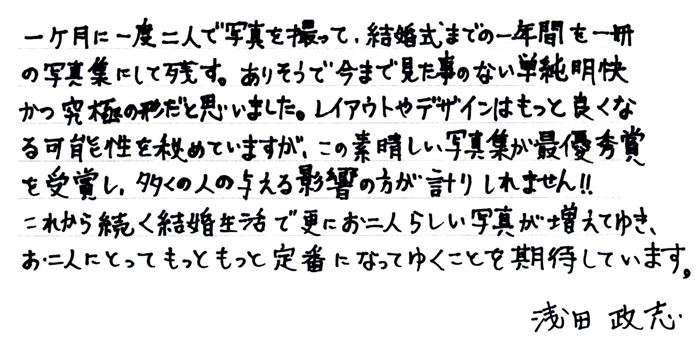 一ケ月に一度二人で写真を撮って、結婚式までの一年間を一冊
の写真集にして残す。ありそうで今まで見た事のない単純明快
かつ究極の形だと思いました。レイアウトやデザインはもっと良くな
る可能性を秘めていますが、この素晴しい写真集が最優秀賞
を受賞し、多くの人の与える影響の方が計りしれません!!
これから続く結婚生活で更にお二人らしい写真が増えてゆき、
お二人にとってもっともっと定番になってゆくことを期待しています。
浅田 政志